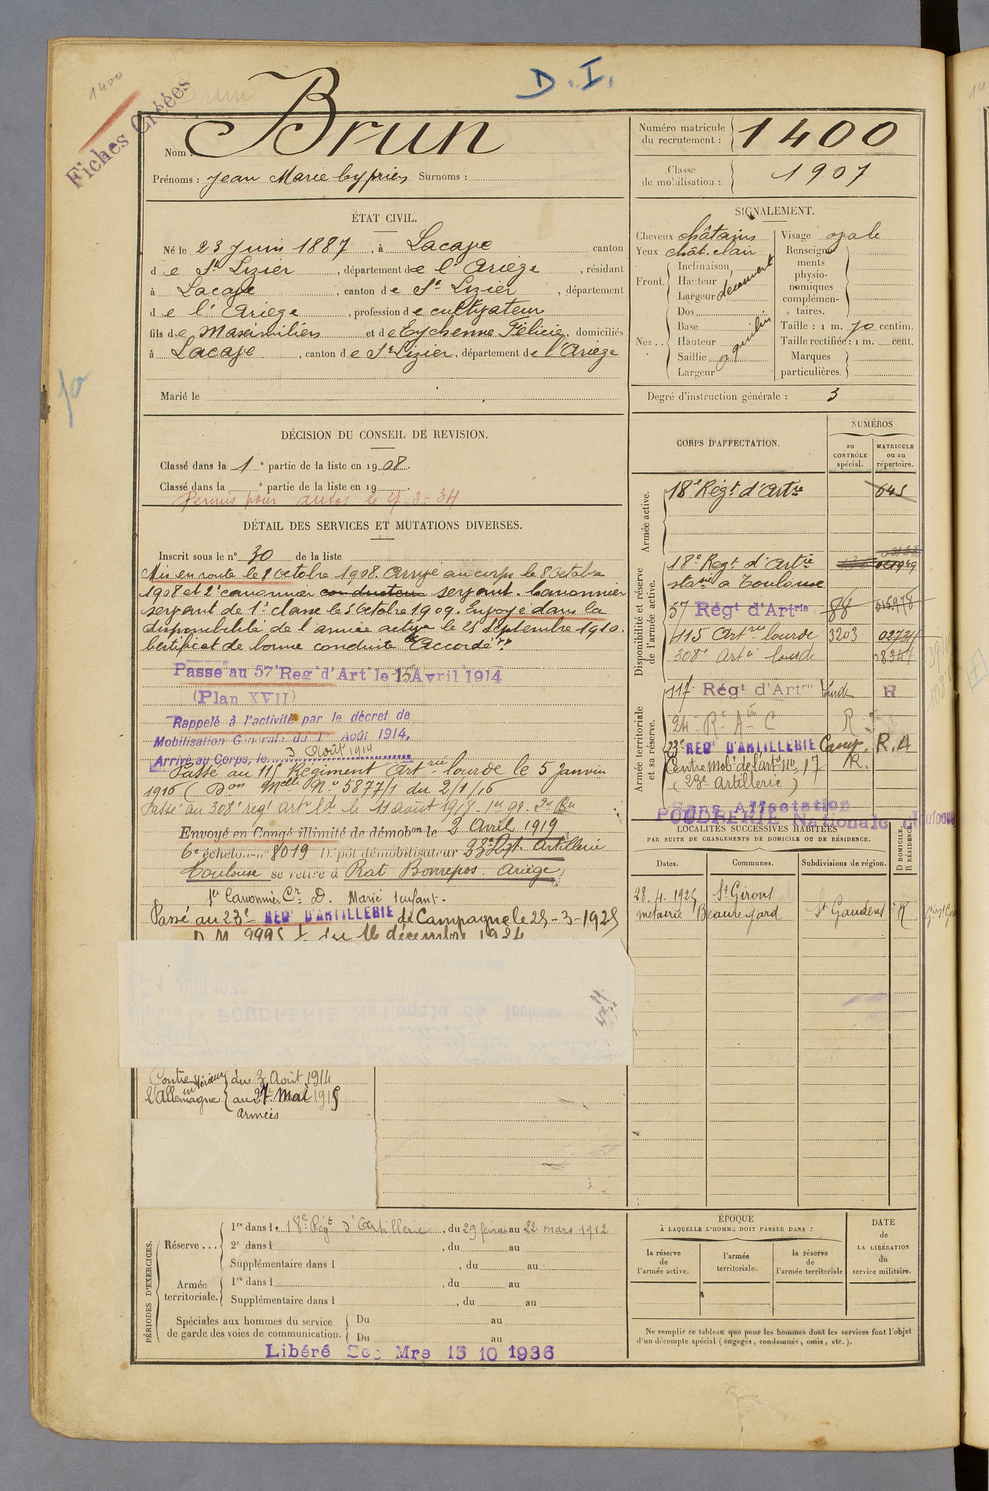 1400
Fiches Créées
D. I.
Nom : Brun
Prénoms : Jean Marie Cypriès Surnoms :
Numéro matricule du recrutement : 1400
Classe de mobilisation : 1907
ÉTAT CIVIL.
Né le 23 Juin 1887, à Lacave canton
de St Lizier, département de l'Ariège, résidant
à Lacave, canton de St Lizier, département
de l'Ariège, profession de cultivateur
fils de Maximilien et de Eychenne Félicie, domiciliés
à Lacave, canton de St Lizier, département de l'Ariège
Marié le
SIGNALEMENT.
Cheveux châtains
Yeux chât. clair
Front. Inclinaison,
Hauteur
Largeur découvert
Nez.. Dos
Base
Hauteur
Saillie aquilin
Largeur
Visage ovale
Renseignements physionomiques complémentaires.
Taille : 1 m. 70 centim.
Taille rectifiée : 1 m. cent.
Marques particulières.
Degré d'instruction générale : 3
DÉCISION DU CONSEIL DE REVISION.
Classé dans la 1e partie de la liste en 1908.
Classé dans la e partie de la liste en 19
Permis pour autos le 27-3-34
DÉTAIL DES SERVICES ET MUTATIONS DIVERSES.
Inscrit sous le n° 30 de la liste
Mis en route le 8 octobre 1908. Arrivé au corps le 8 octobre
1908 et 2e canonnier conducteur servant. Canonnier
servant de 1e classe le 5 Octobre 1909. Envoyé dans la
disponibilité de l'armée active le 25 septembre 1910.
Certificat de bonne conduite "Accordé".
Passé au 57e Reg d'Art le 15 Avril 1914
(Plan XVII)
Rappelé à l'activité par le décret de
Mobilisation Générale du 1er Août 1914,
Arrivé au Corps, le 3 Août 1914
Passé au 115e Régiment Artrie lourde le 5 Janvier
1916 (Don Melle No 5877/1 du 2/1/16
Passé au 308e regt artie lde le 11 août 1918.
Envoyé en Congé illimité de démobon le 2 Avril 1919
6e échelon no 8019 Dépôt démobilisateur 23e Regt Artillerie
Toulouse se retire à Rat Bonrepos. Ariège
Marié 1 enfant.
Passé au 23e REG D'ARTILLERIE de Campagne le 25-3-1925
D.M. 9995 du 16 décembre 1924
POUDRERIE Nationale de Toulouse
Contre l'Allemagne
intérieur du 3 Août 1914
au 27 Mai 1915
armées
CORPS D'AFFECTATION.
NUMÉROS
au CONTRÔLE spécial.
MATRICULE ou au répertoire.
Armée active.
18e Régt d'Artie 645
Disponibilité et réserve de l'armée active.
18e Regt d'Artie
stnel à Toulouse
57 Régt d'Artrie 88
115 Artrie lourde 3203 02734
308e Artie lourde
Armée territoriale et sa réserve.
117 Régt d'Artrie lourde R
24e R. A. C R
23e REG D'ARTILLERIE Camp. R.A
Centre Mobe de l'art no 17 R.
(23e Artillerie)
Sans Affectation
POUDRERIE Nationale de Toulouse
LOCALITÉS SUCCESSIVES HABITÉES
PAR SUITE DE CHANGEMENTS DE DOMICILE OU DE RÉSIDENCE.
Dates. Communes. Subdivisions de région. D DOMICILE R RÉSIDENCE.
28.4.1925 St Girons
métairie Beauregard St Gaudens R
PÉRIODES D'EXERCICES.
Réserve...
1re dans le 18e Régt d'Artillerie, du 29 février au 22 mars 1912
2e dans l , du au
Supplémentaire dans l , du au
Armée territoriale.
1re dans l , du au
Supplémentaire dans l , du au
Spéciales aux hommes du service de garde des voies de communication.
Du au
Du au
Libéré Mre 15 10 1936
ÉPOQUE
À LAQUELLE L'HOMME DOIT PASSER DANS :
la réserve de l'armée active.
l'armée territoriale.
la réserve de l'armée territoriale
DATE de LA LIBÉRATION du service militaire.
Ne remplir ce tableau que pour les hommes dont les services font l'objet
d'un décompte spécial (engagés, condamnés, omis, etc.).